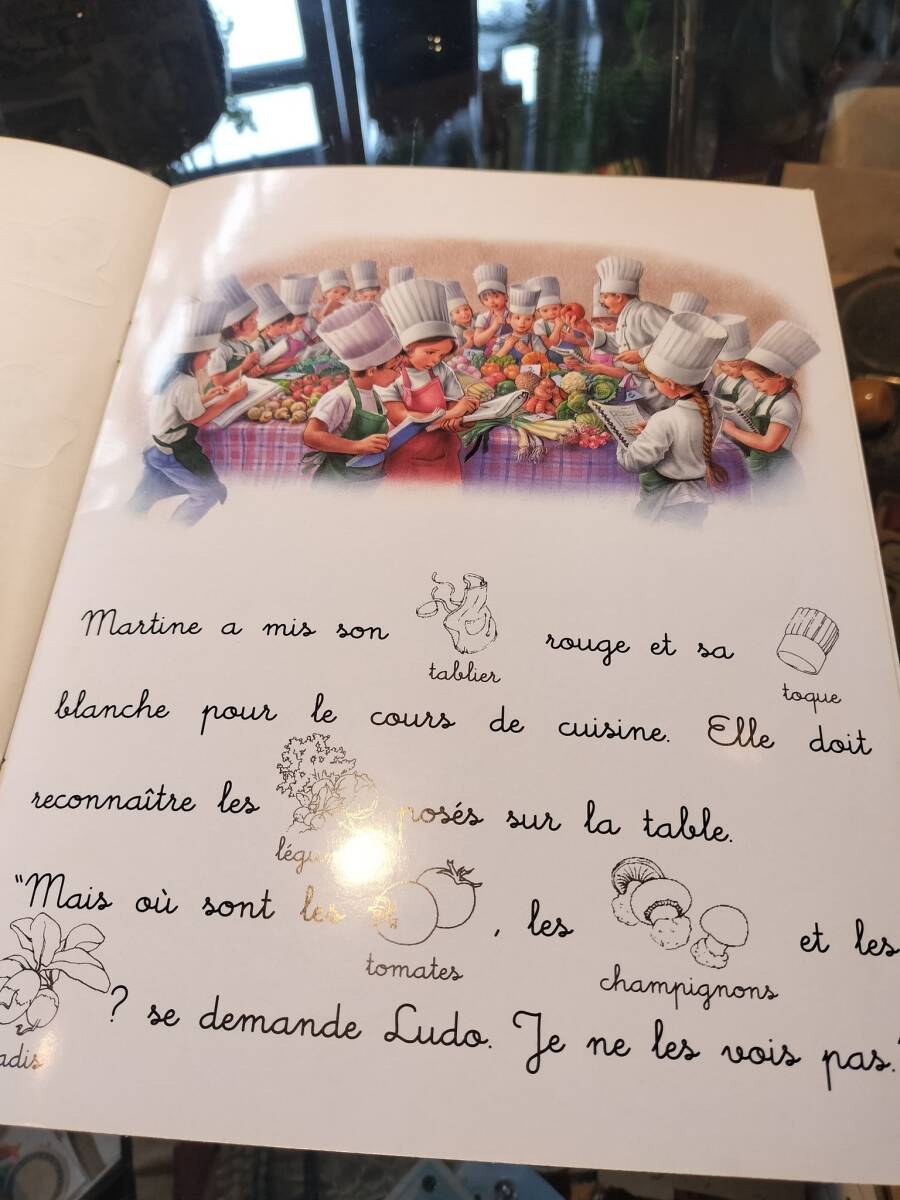 Martine a mis son tablier rouge et sa toque
blanche pour le cours de cuisine. Elle doit
reconnaître les posés sur la table.
"Mais où sont les tomates, les champignons et les
? se demande Ludo. Je ne les vois pas."